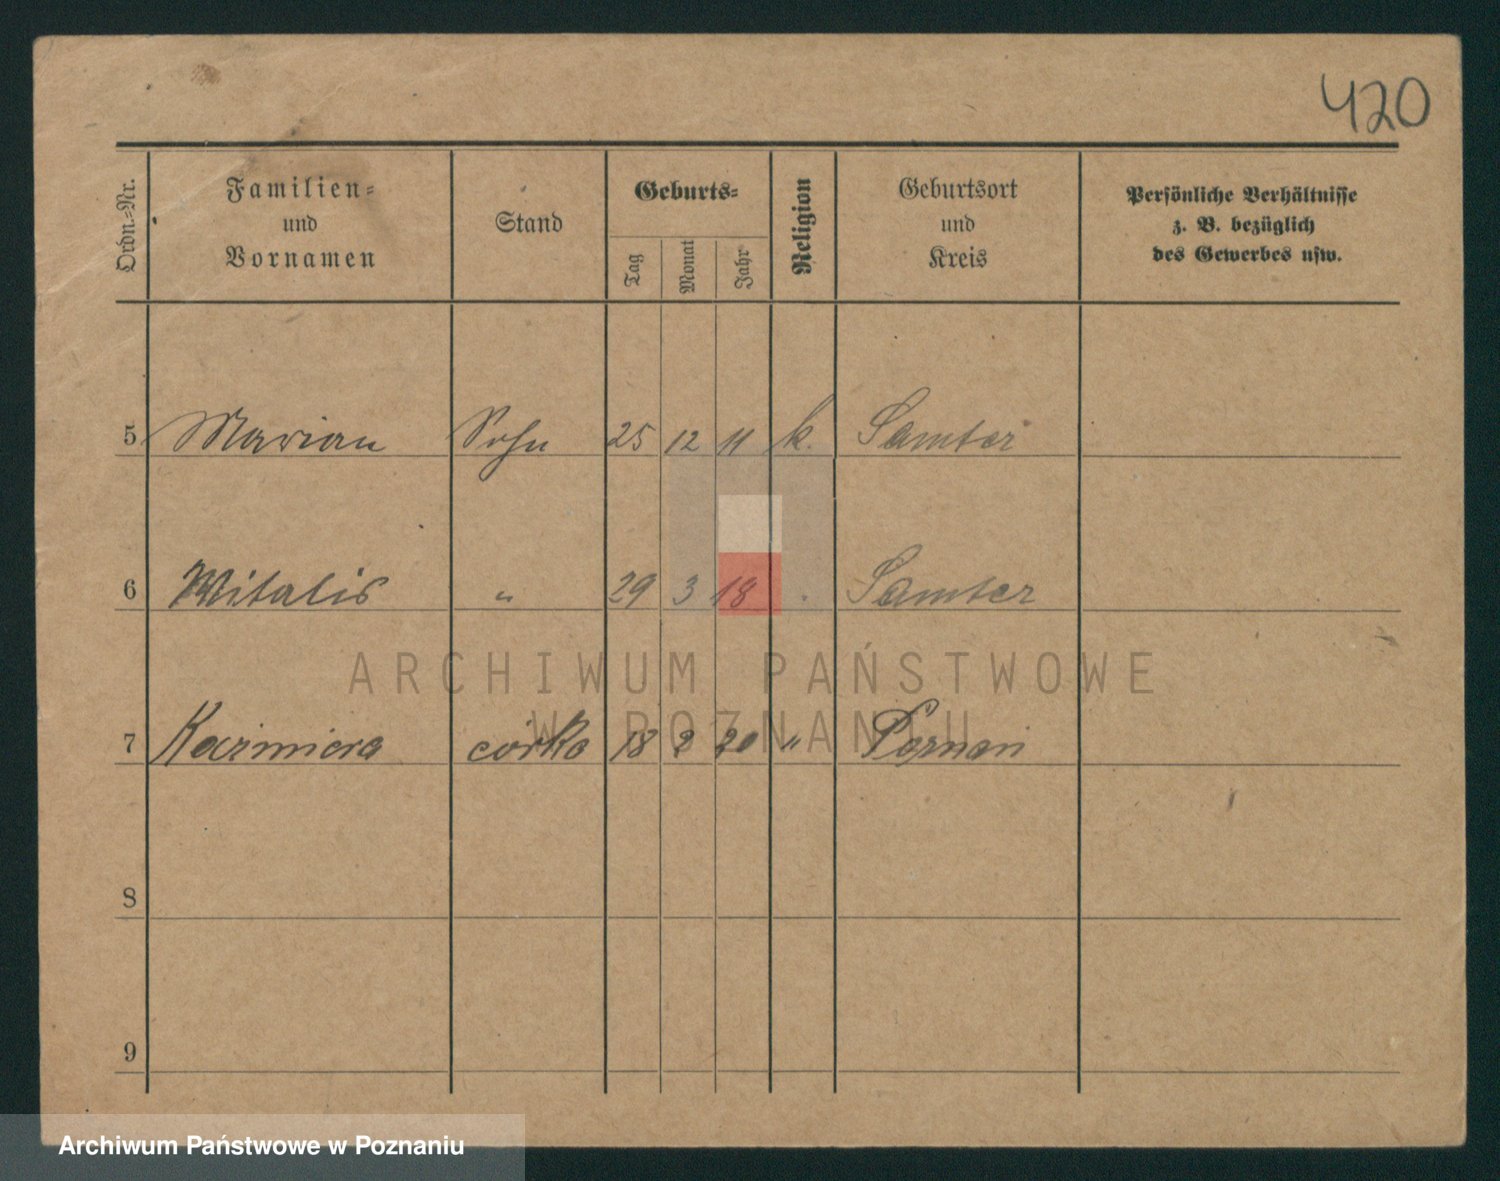 420
Ordn.-Nr.
Familien-
und
Vornamen
Stand
Geburts-
Tag
Monat
Jahr
Religion
Geburtsort
und
Kreis
Persönliche Verhältnisse
z. B. bezüglich
des Gewerbes usw.
5 Marian Sohn 25 12 11 k. Samter
6 Witalis " 29 3 18 . Samter
ARCHIWUM PAŃSTWOWE
W POZNANIU
7 Kazimiera córka 18 2 20 " Poznań
8
9
Archiwum Państwowe w Poznaniu